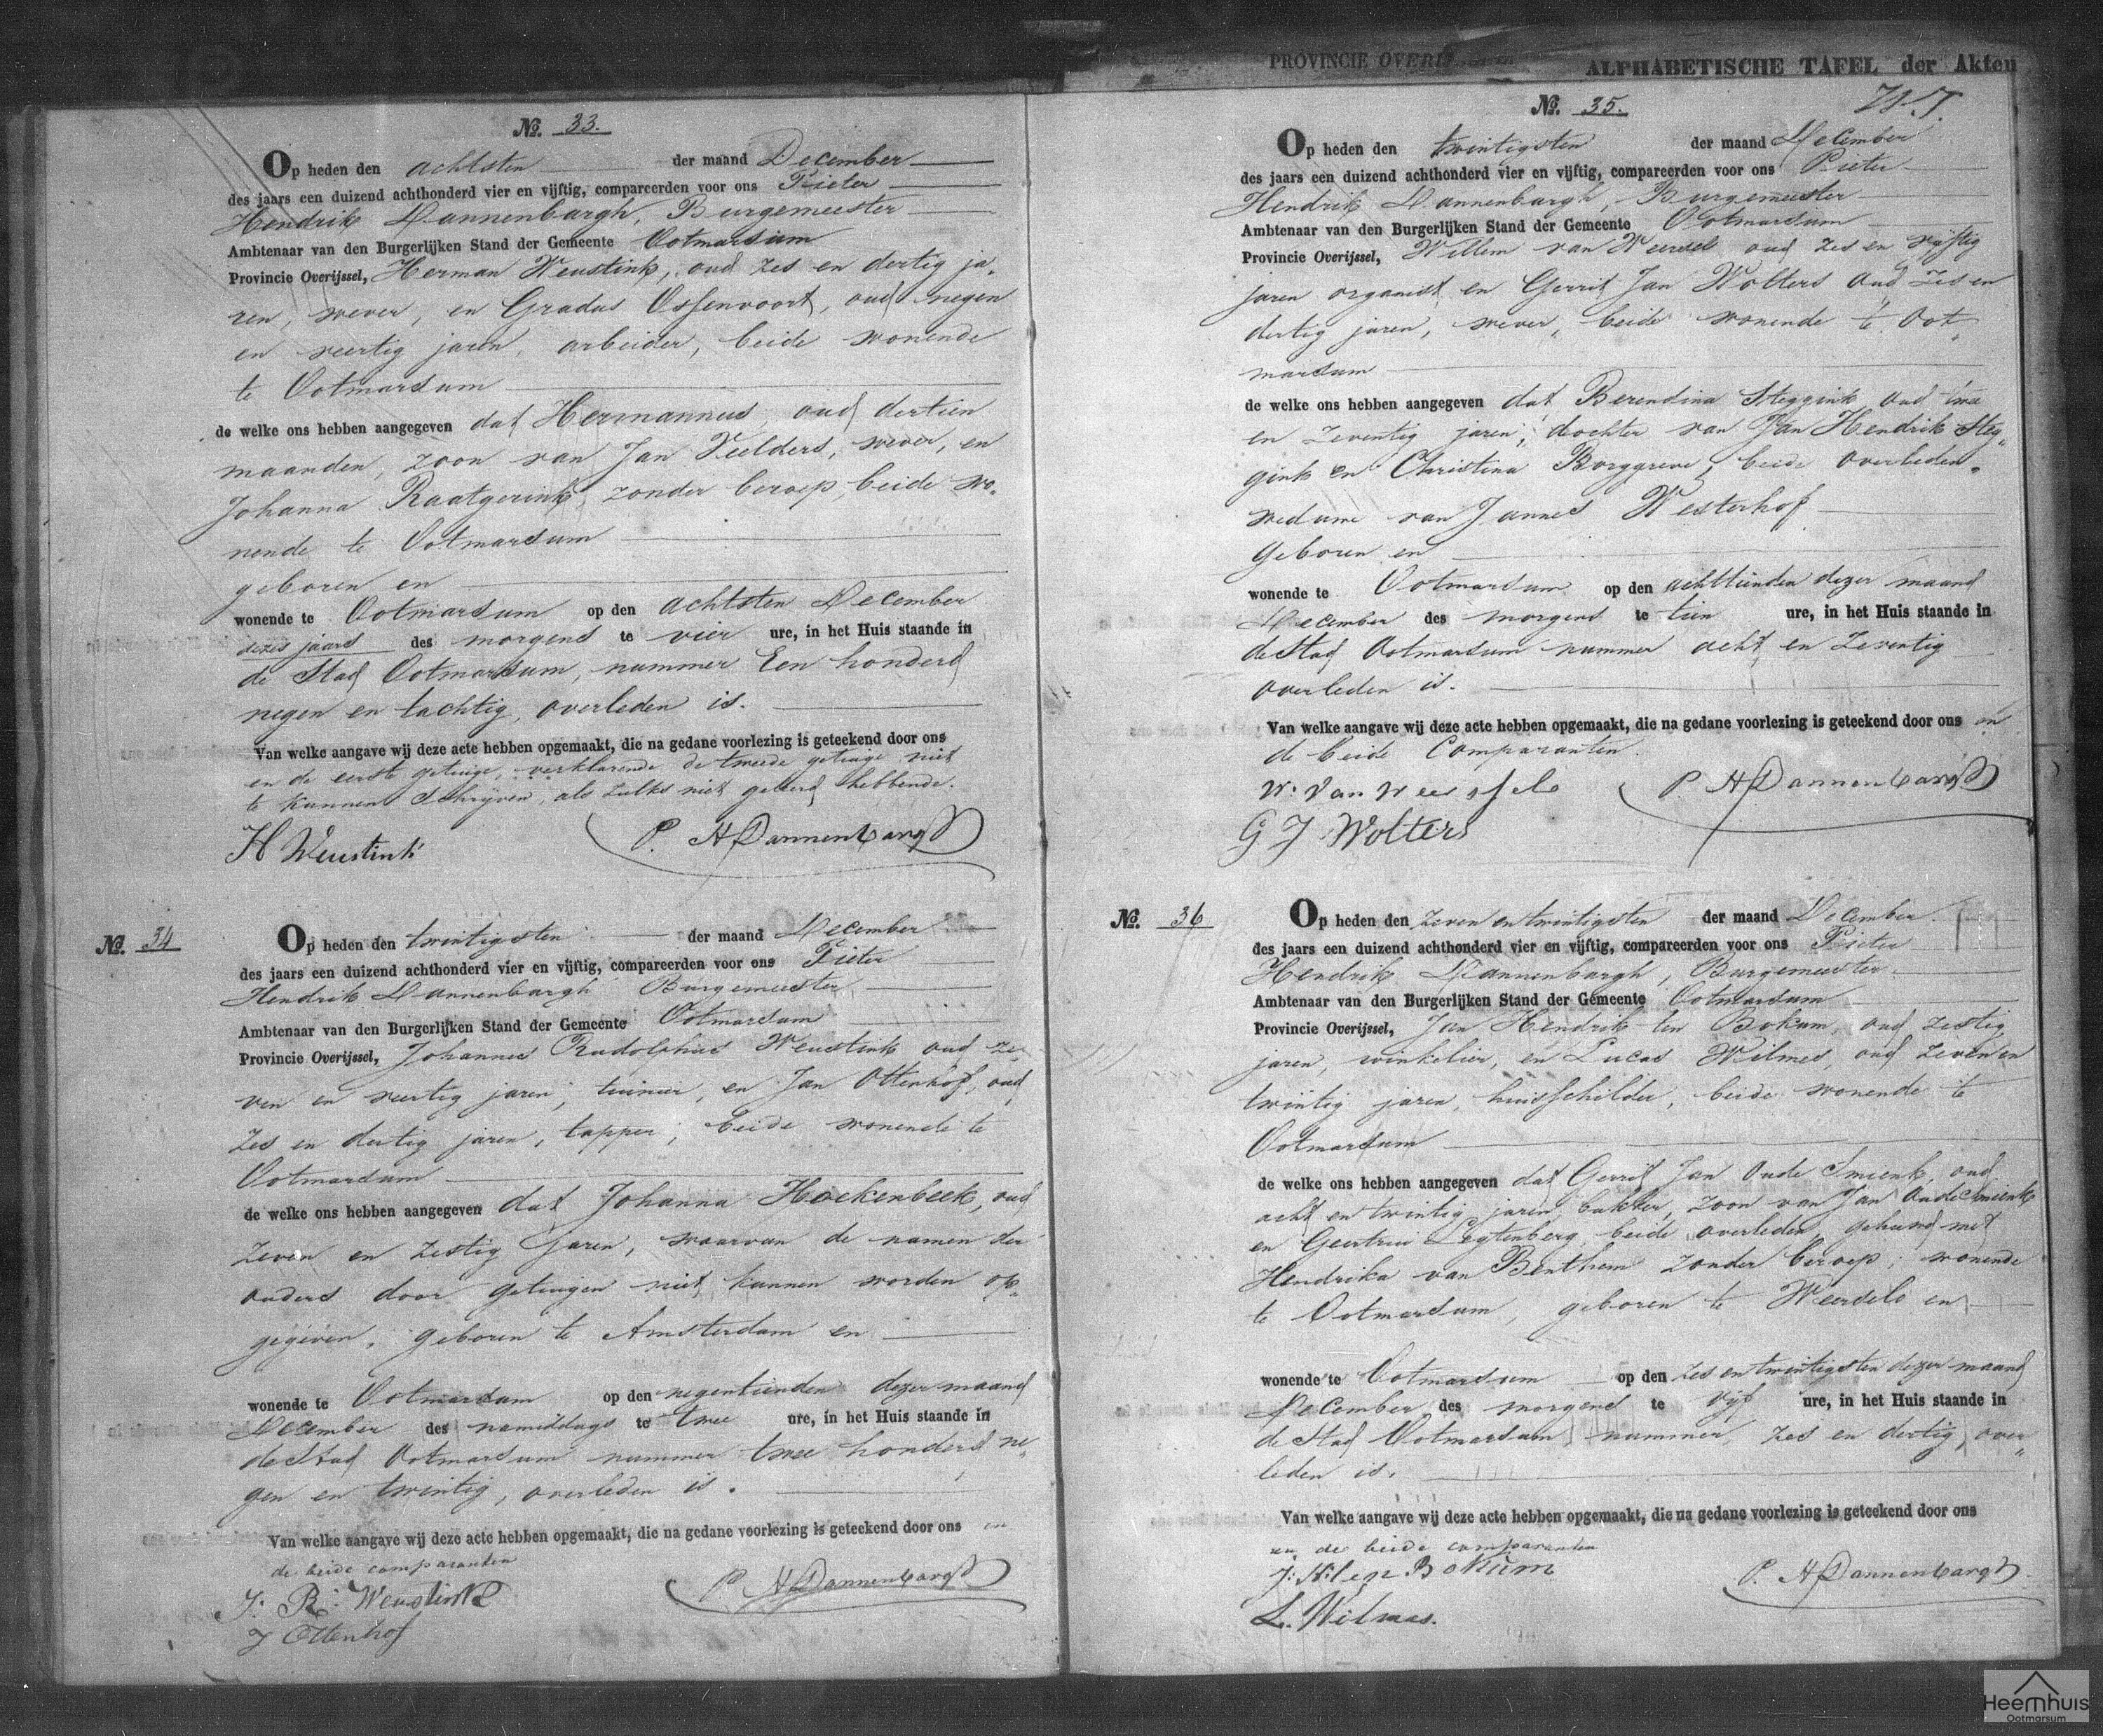 PROVINCIE OVERIJ
ALPHABETISCHE TAFEL der Akten
No. 33.
Op heden den achtsten der maand December
des jaars een duizend achthonderd vier en vijftig, compareerden voor ons Pieter
Hendrik Dannenbargh, Burgemeester
Ambtenaar van den Burgerlijken Stand der Gemeente Ootmarsum
Provincie Overijssel, Herman Weustink, oud zes en dertig ja„
ren, wever, en Gradus Ossenvoort, oud negen
en veertig jaren, arbeider, beide wonende
te Ootmarsum
de welke ons hebben aangegeven dat Hermannus oud dertien
maanden, zoon van Jan Veelders, wever, en
Johanna Raatgerink, zonder beroep, beide wo„
nende te Ootmarsum
geboren en
wonende te Ootmarsum op den achtsten December
dezes jaars des morgens te vier ure, in het Huis staande in
de Stad Ootmarsum, nummer Een honderd
negen en tachtig, overleden is.
Van welke aangave wij deze acte hebben opgemaakt, die na gedane voorlezing is geteekend door ons
en de eerste getuige, verklarende de tweede getuige niet
te kunnen Schrijven, als zulks niet geleerd hebbende.
H Weustink P. H Dannenbargh
No. 34
Op heden den twintigsten der maand December
des jaars een duizend achthonderd vier en vijftig, compareerden voor ons Pieter
Hendrik Dannenbargh Burgemeester
Ambtenaar van den Burgerlijken Stand der Gemeente Ootmarsum
Provincie Overijssel, Johannes Rudolphus Weustink oud ze„
ven en veertig jaren, tuinier, en Jan Ottenhof, oud
zes en dertig jaren, tapper, beide wonende te
Ootmarsum
de welke ons hebben aangegeven dat Johanna Hoekenbeek, oud
zeven en zestig jaren, waarvan de namen der
ouders door getuigen niet kunnen worden op„
gegeven, geboren te Amsterdam en
wonende te Ootmarsum op den negentienden dezer maand
December des namiddags te twee ure, in het Huis staande in
de Stad Ootmarsum nummer twee honderd ne„
gen en twintig, overleden is.
Van welke aangave wij deze acte hebben opgemaakt, die na gedane voorlezing is geteekend door ons en
de beide comparanten
J: R: Weustink P. H Dannenbargh
J Ottenhof
No. 35.
Op heden den twintigsten der maand December
des jaars een duizend achthonderd vier en vijftig, compareerden voor ons Pieter
Hendrik Dannenbargh, Burgemeester
Ambtenaar van den Burgerlijken Stand der Gemeente Ootmarsum
Provincie Overijssel, Willem van Weersel oud zes en vijftig
jaren organist en Gerrit Jan Wolters oud zes en
dertig jaren, wever, beide wonende te Oot„
marsum
de welke ons hebben aangegeven dat Berendina Steggink oud twee
en zeventig jaren, dochter van Jan Hendrik Steg„
gink en Christina Borggreve, beide overleden.
weduwe van Jannes Westerhof
geboren en
wonende te Ootmarsum op den achttienden dezer maand
December des morgens te tien ure, in het Huis staande in
de Stad Ootmarsum nummer acht en zeventig
overleden is.
Van welke aangave wij deze acte hebben opgemaakt, die na gedane voorlezing is geteekend door ons en
de beide Comparanten.
W: Van Weersel P. H Dannenbargh
G J Wolters
No. 36
Op heden den zeven en twintigsten der maand December.
des jaars een duizend achthonderd vier en vijftig, compareerden voor ons Pieter
Hendrik Dannenbargh, Burgemeester
Ambtenaar van den Burgerlijken Stand der Gemeente Ootmarsum
Provincie Overijssel, Jan Hendrik ten Bokum, oud zestig
jaren, winkelier, en Lucas Wilmes, oud zeven en
twintig jaren, huisschilder, beide wonende te
Ootmarsum
de welke ons hebben aangegeven dat Gerrit Jan Oude Smienk, oud
acht en twintig jaren, bakker, zoon van Jan Oude Smienk
en Geertrui Leytenberg beide overleden, gehuwd met
Hendrika van Benthem zonder beroep, wonende
te Ootmarsum, geboren te Weerselo en
wonende te Ootmarsum op den zes en twintigsten dezer maand
December des morgens te vijf ure, in het Huis staande in
de Stad Ootmarsum nummer zes en dertig, over„
leden is.
Van welke aangave wij deze acte hebben opgemaakt, die na gedane voorlezing is geteekend door ons
en de beide comparanten
J: H: ten Bokum P. H Dannenbargh
L. Wilmes.
Heemhuis
Ootmarsum